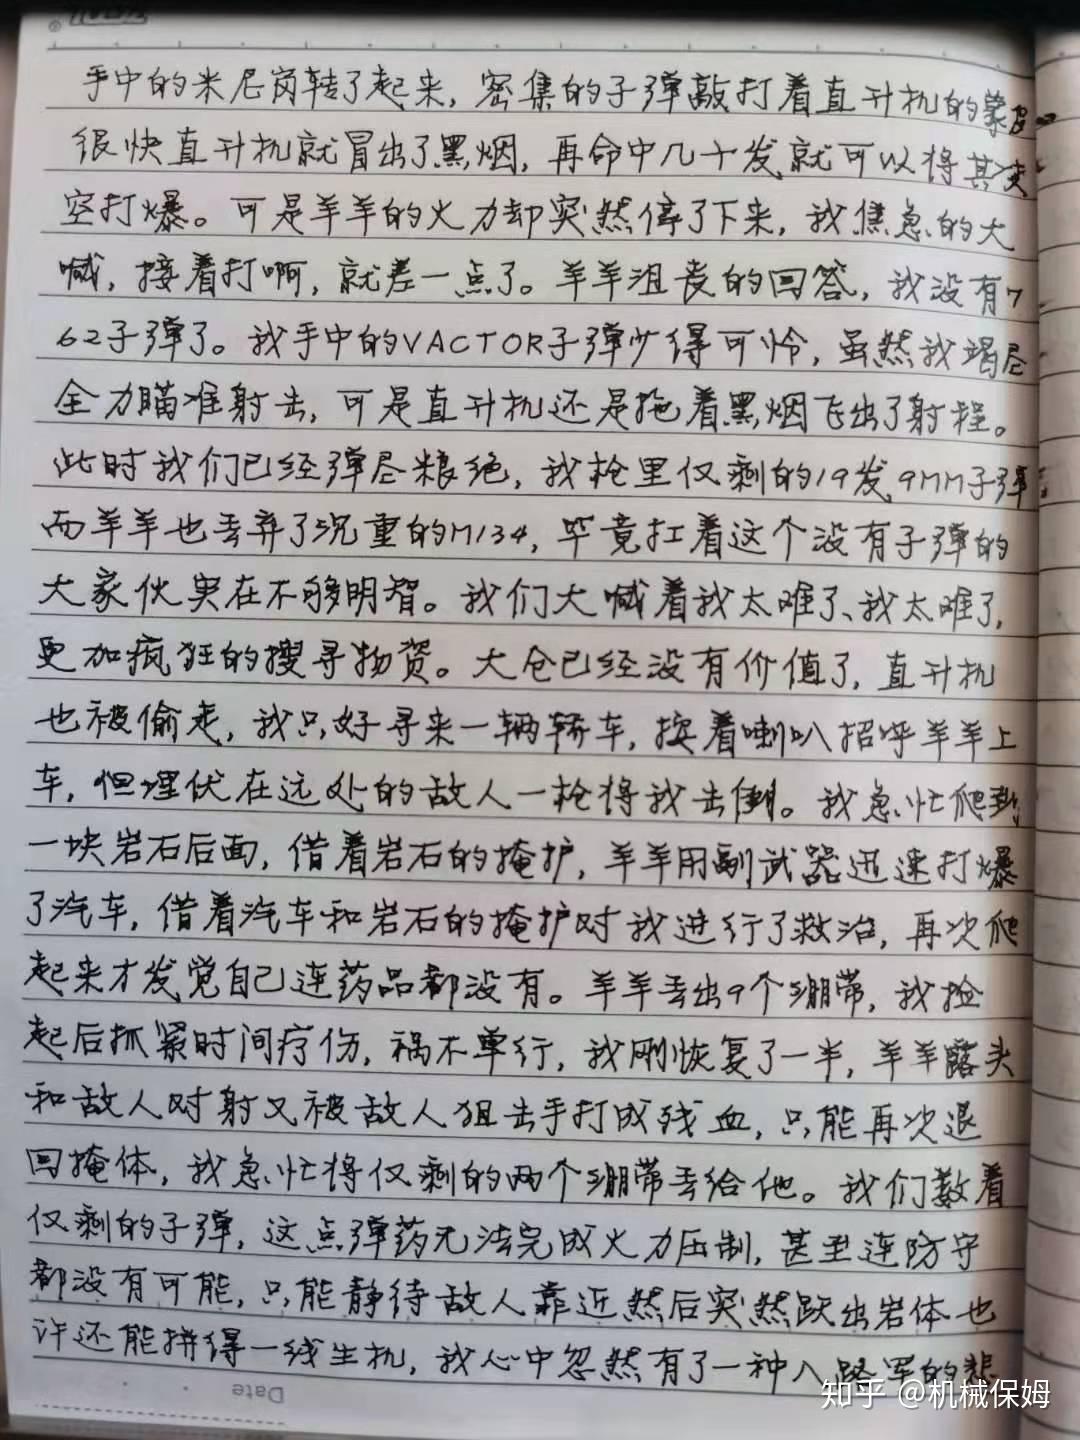 手中的米尼岗转了起来，密集的子弹敲打着直升机的蒙皮
很快直升机就冒出了黑烟，再命中几十发就可以将其凌
空打爆。可是羊羊的火力却突然停了下来，我焦急的大
喊，接着打啊，就差一点了。羊羊沮丧的回答，我没有7
62子弹了。我手中的VACTOR子弹少得可怜，虽然我竭尽
全力瞄准射击，可是直升机还是拖着黑烟飞出了射程。
此时我们已经弹尽粮绝，我枪里仅剩的19发9MM子弹
而羊羊也丢弃了沉重的M134，毕竟扛着这个没有子弹的
大家伙实在不够明智。我们大喊着我太难了、我太难了，
更加疯狂的搜寻物资。大仓已经没有价值了，直升机
也被偷走，我只好寻来一辆轿车，按着喇叭招呼羊羊上
车，但埋伏在远处的敌人一枪将我击倒。我急忙爬到
一块岩石后面，借着岩石的掩护，羊羊用副武器迅速打爆
了汽车，借着汽车和岩石的掩护对我进行了救治，再次爬
起来才发觉自己连药品都没有。羊羊丢出9个绷带，我捡
起后抓紧时间疗伤，祸不单行，我刚恢复了一半，羊羊露头
和敌人对射又被敌人狙击手打成残血，只能再次退
回掩体，我急忙将仅剩的两个绷带丢给他。我们数着
仅剩的子弹，这点弹药无法完成火力压制，甚至连防守
都没有可能，只能静待敌人靠近然后突然跃出岩体也
许还能拼得一线生机，我心中忽然有了一种八路军的悲
Date
知乎 @机械保姆